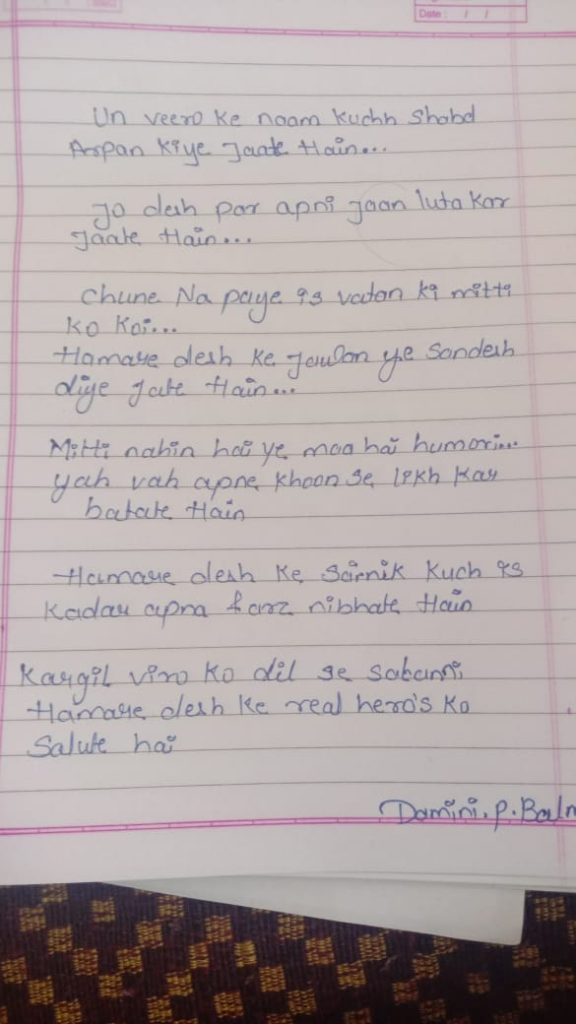 Date / /
Un veero ke naam kuchh Shabd
Arpan Kiye Jaate Hain...
Jo desh par apni jaan luta Kar
Jaate Hain...
Chune Na paye is vatan ki mitti
Ko Koi...
Hamare desh ke Jawan ye Sandesh
diye Jate Hain...
Mitti nahin hai ye maa hai humari...
yah vah apne khoon se likh Kar
batate Hain
Hamare desh Ke Sainik Kuch is
Kadar apna farz nibhate Hain
Kargil viro Ko dil se
Hamare desh Ke real hero's Ko
Salute hai
Damini.P.